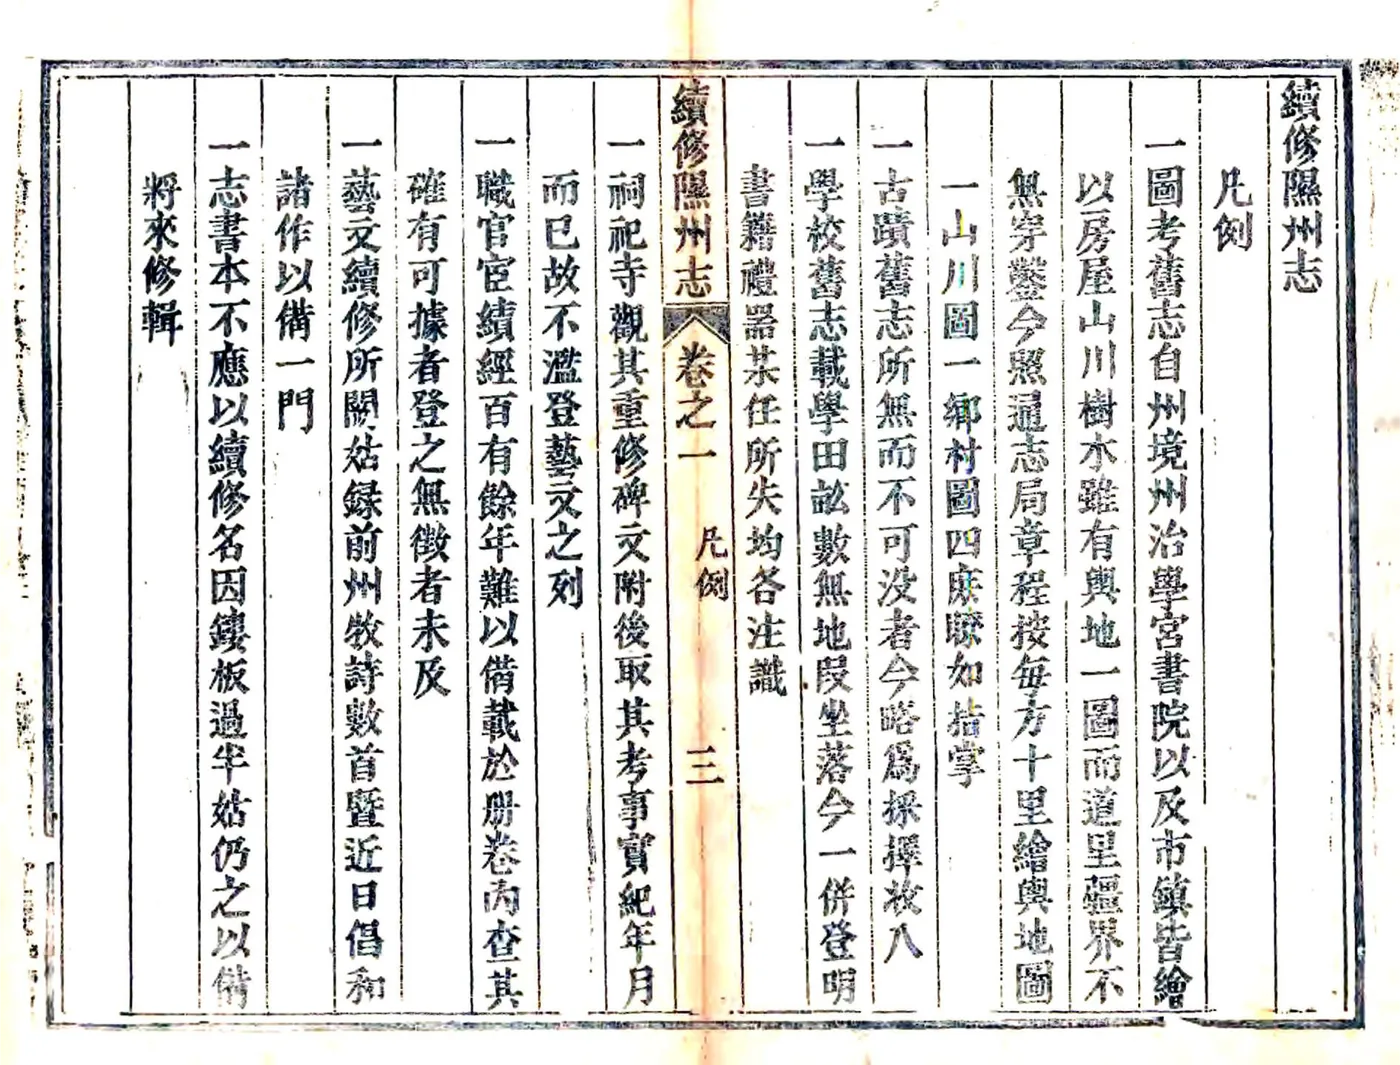 續修隰州志
凡例
一圖考舊志自州境州治學宮書院以及市鎮皆繪
以房屋山川樹木雖有輿地一圖而道里疆界不
無穿鑿今照通志局章程按每方十里繪輿地圖
一山川圖一鄉村圖四庶瞭如指掌
一古蹟舊志所無而不可没者今略爲採擇收八
一學校舊志載學田訟數無地段坐落今一併登明
書籍禮器某任所失均各注識
續修隰州志
卷之一
凡例
三
一祠祀寺觀其重修碑文附後取其考事實紀年月
而已故不濫登藝文之列
一職官宦績經百有餘年難以備載於册卷內查其
確有可據者登之無徵者未及
一藝文續修所關姑録前州牧詩數首暨近日倡和
諸作以備一門
一志書本不應以續修名因鏤板過半姑仍之以備
將來修輯